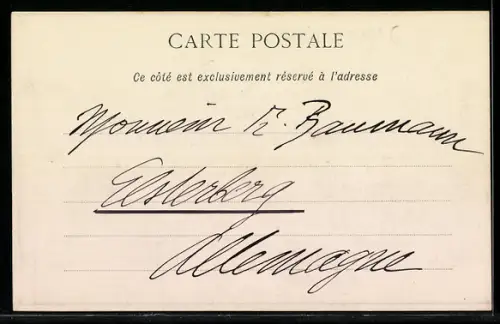 CARTE POSTALE
Ce côté est exclusivement réservé à l'adresse
Monsieur R. Baumann
Elsterberg
Allemagne